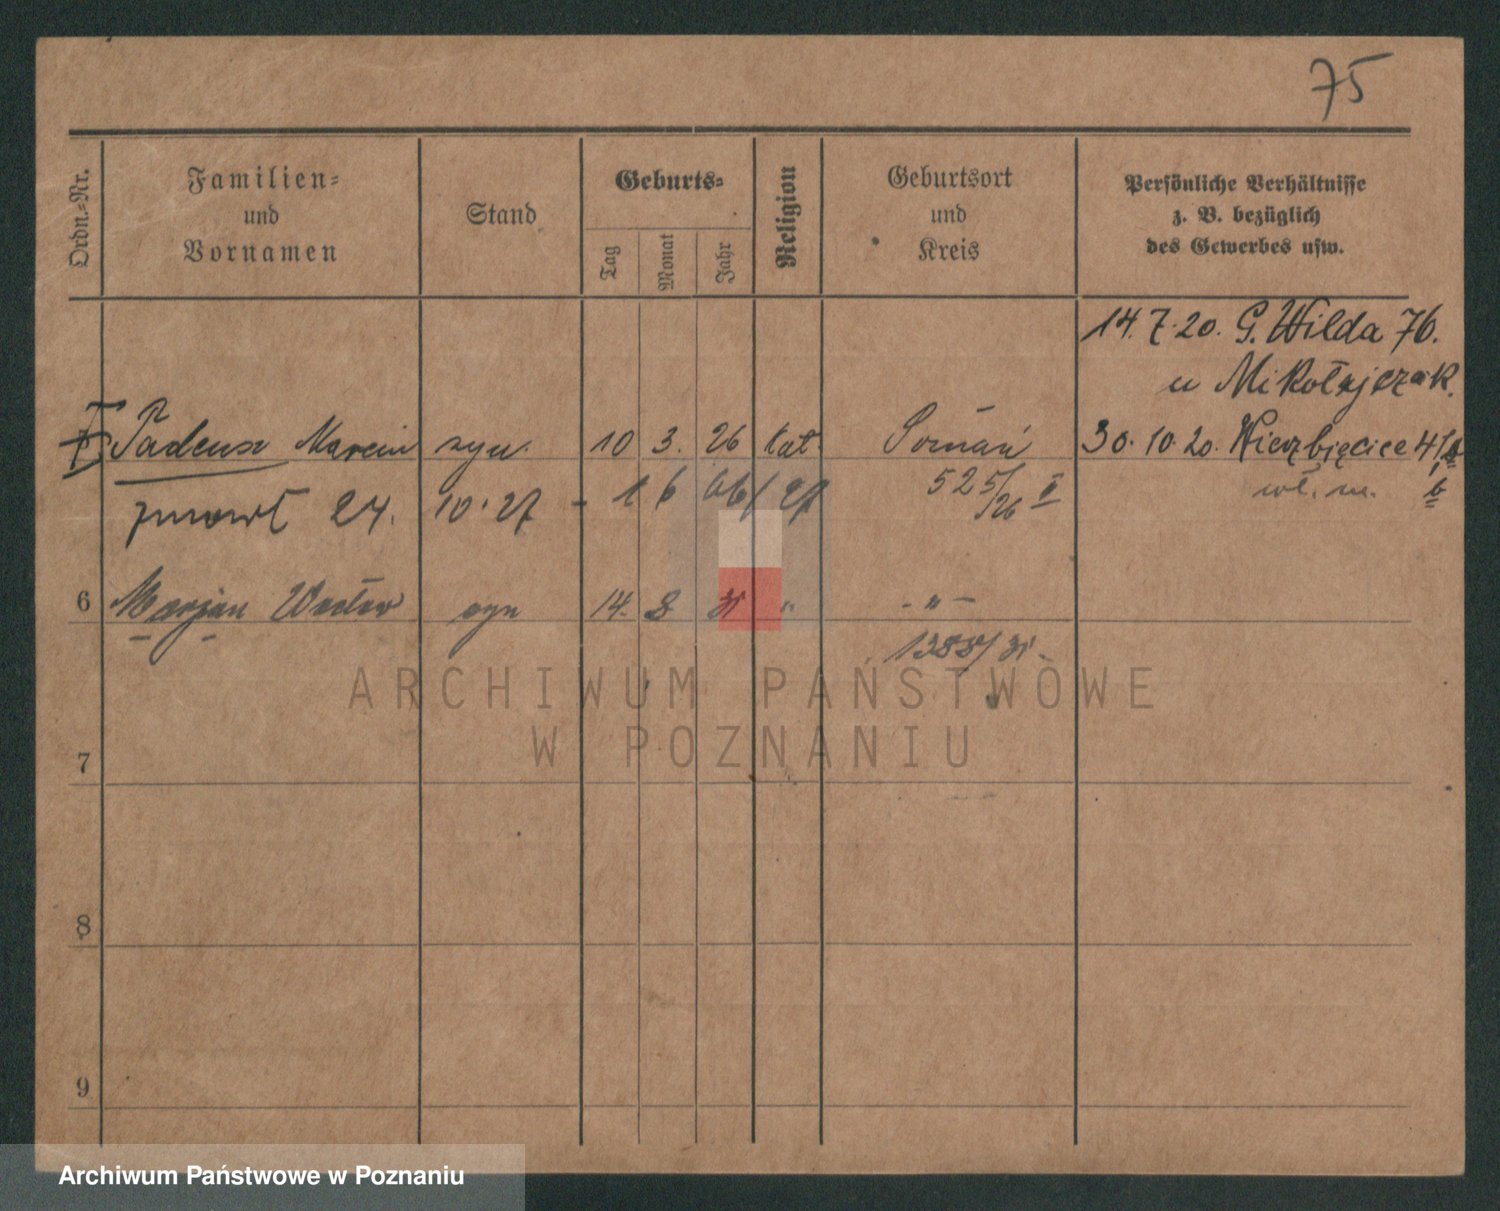 75
Ordn.-Nr.
Familien-
und
Vornamen
Stand
Geburts-
Tag
Monat
Jahr
Religion
Geburtsort
und
Kreis
Persönliche Verhältnisse
z. B. bezüglich
des Gewerbes usw.
14.7.20. G. Wilda 76.
u Mikołajczak.
Tadeusz Marcin syn. 10 3. 26 kat. Poznań
30.10.20. Wierzbięcice 41
zmarł 24. 10.27 525/26 II
6 Marjan Wacław syn 14. 8 31 " - " -
1388/31.
ARCHIWUM PAŃSTWOWE
W POZNANIU
7
8
9
Archiwum Państwowe w Poznaniu